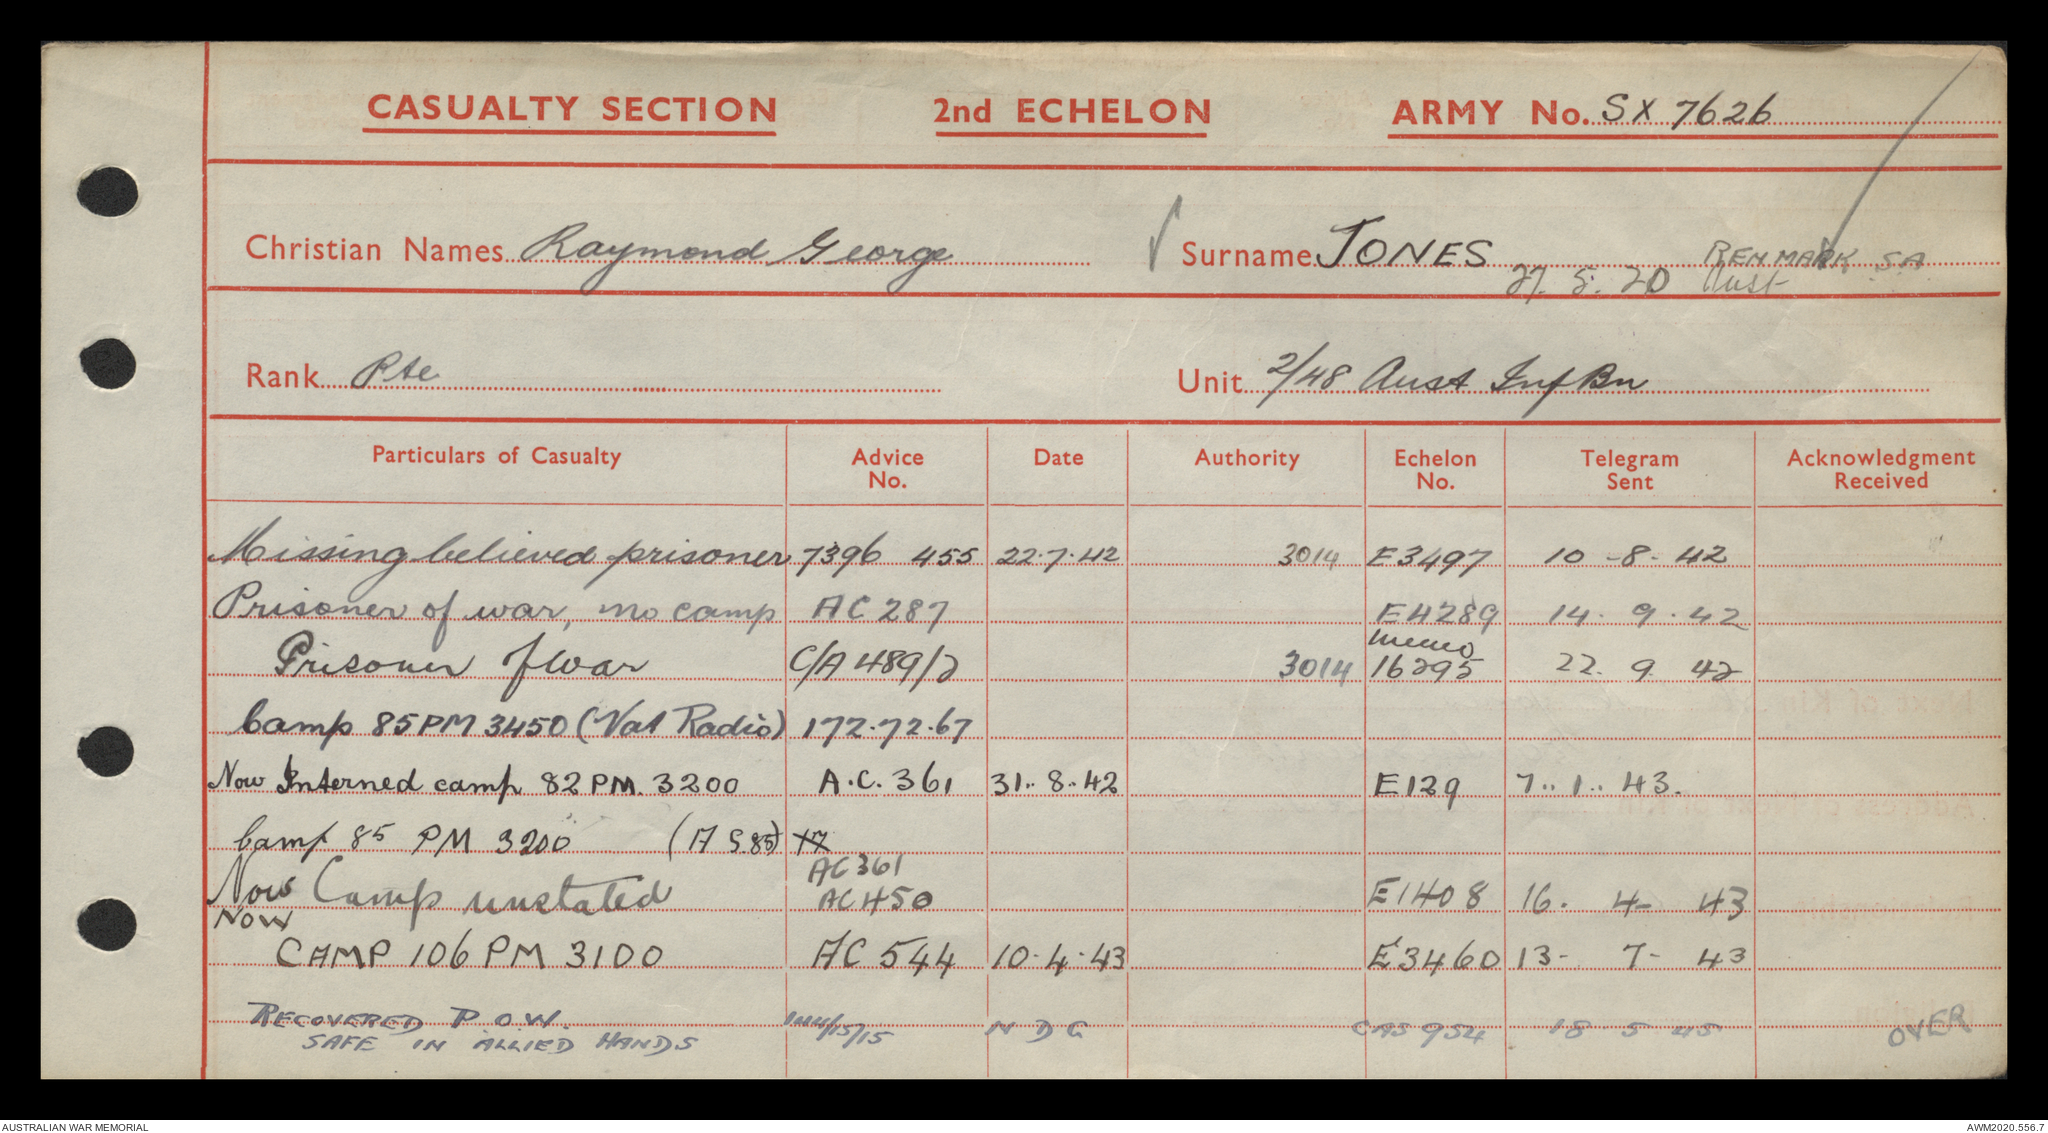 CASUALTY SECTION 2nd ECHELON ARMY No. SX 7626
Christian Names Raymond George Surname JONES RENMARK SA
27. 5. 20 Aust
Rank Pte Unit 2/48 Aust Inf Bn
Particulars of Casualty Advice No. Date Authority Echelon No. Telegram Sent Acknowledgment Received
Missing believed prisoner 7396 455 22.7.42 3014 E3497 10-8-42
Prisoner of war, no camp AC 287 E4289 14.9.42
memo
Prisoner of War C/A 489/2 3014 16295 22.9.42
Camp 85 PM 3450 (Vat Radio) 172.72.67
Now Interned camp 82 PM. 3200 A.C. 361 31.8.42 E129 7.1.43.
Camp 85 PM 3200 (A S 85)
AC 361
Now Camp unstated AC 450 E1408 16. 4- 43
NOW
CAMP 106 PM 3100 AC 544 10.4.43 E3460 13- 7- 43
RECOVERED P.O.W. 144/15/15 N D G CAS 954 18 5 45 OVER
SAFE IN ALLIED HANDS
AUSTRALIAN WAR MEMORIAL AWM2020.556.7